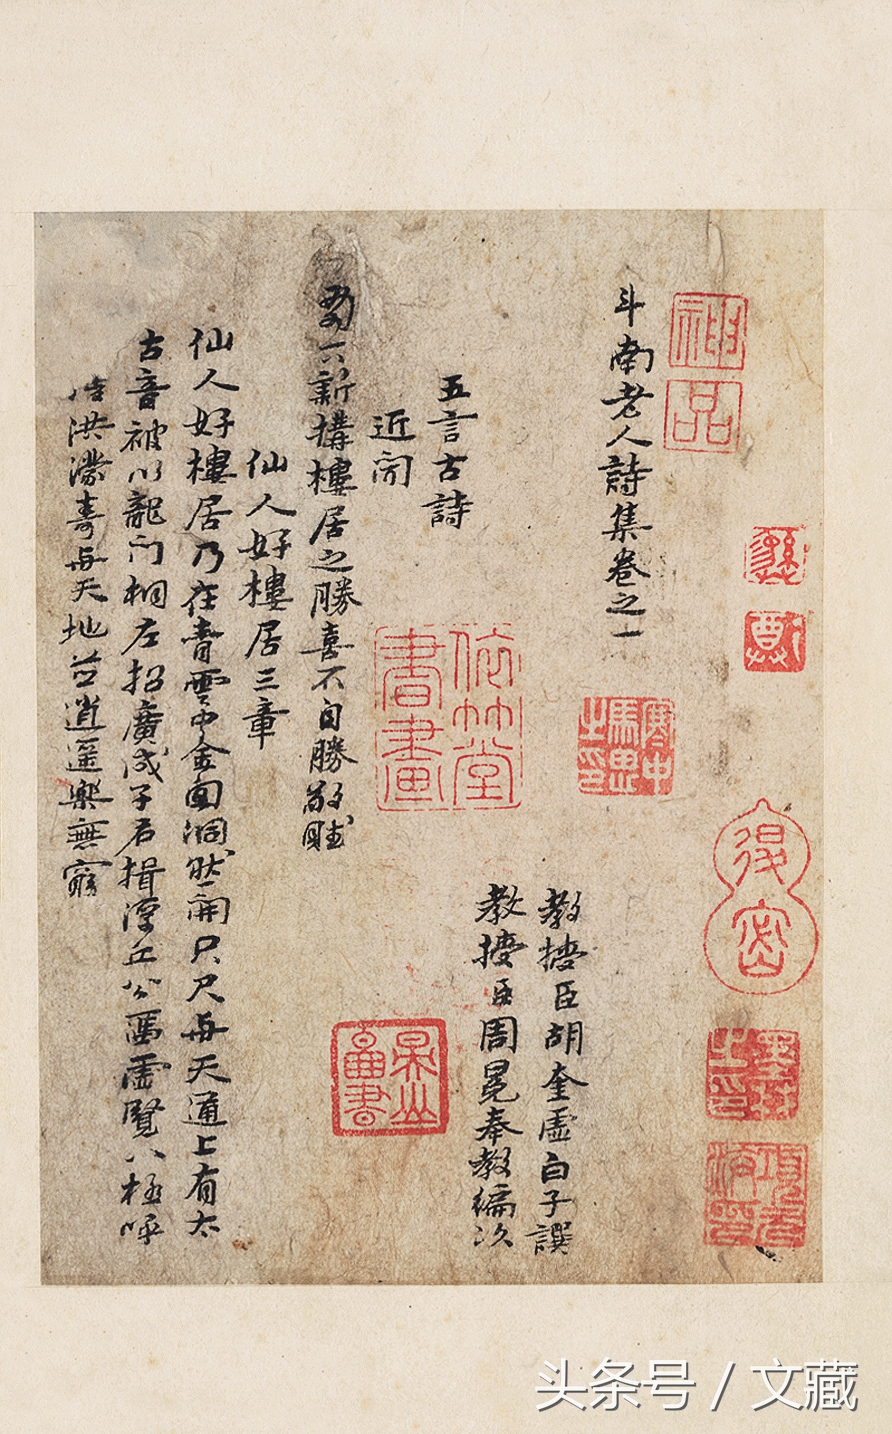 斗南老人詩集卷之一
教授臣胡奎虛白子譔
教授臣周冕奉教編次
五言古詩
近聞
新構樓居之勝喜不自勝敬賦
仙人好樓居三章
仙人好樓居乃在青雲中金囪洞然開只尺與天通上有太
古音被以龍門桐左招廣成子右揖浮丘公馮虛覽八極呼
洪濛壽與天地並逍遥樂無窮
神品
依竹堂書畫
墨林之印
頭條号 / 文藏